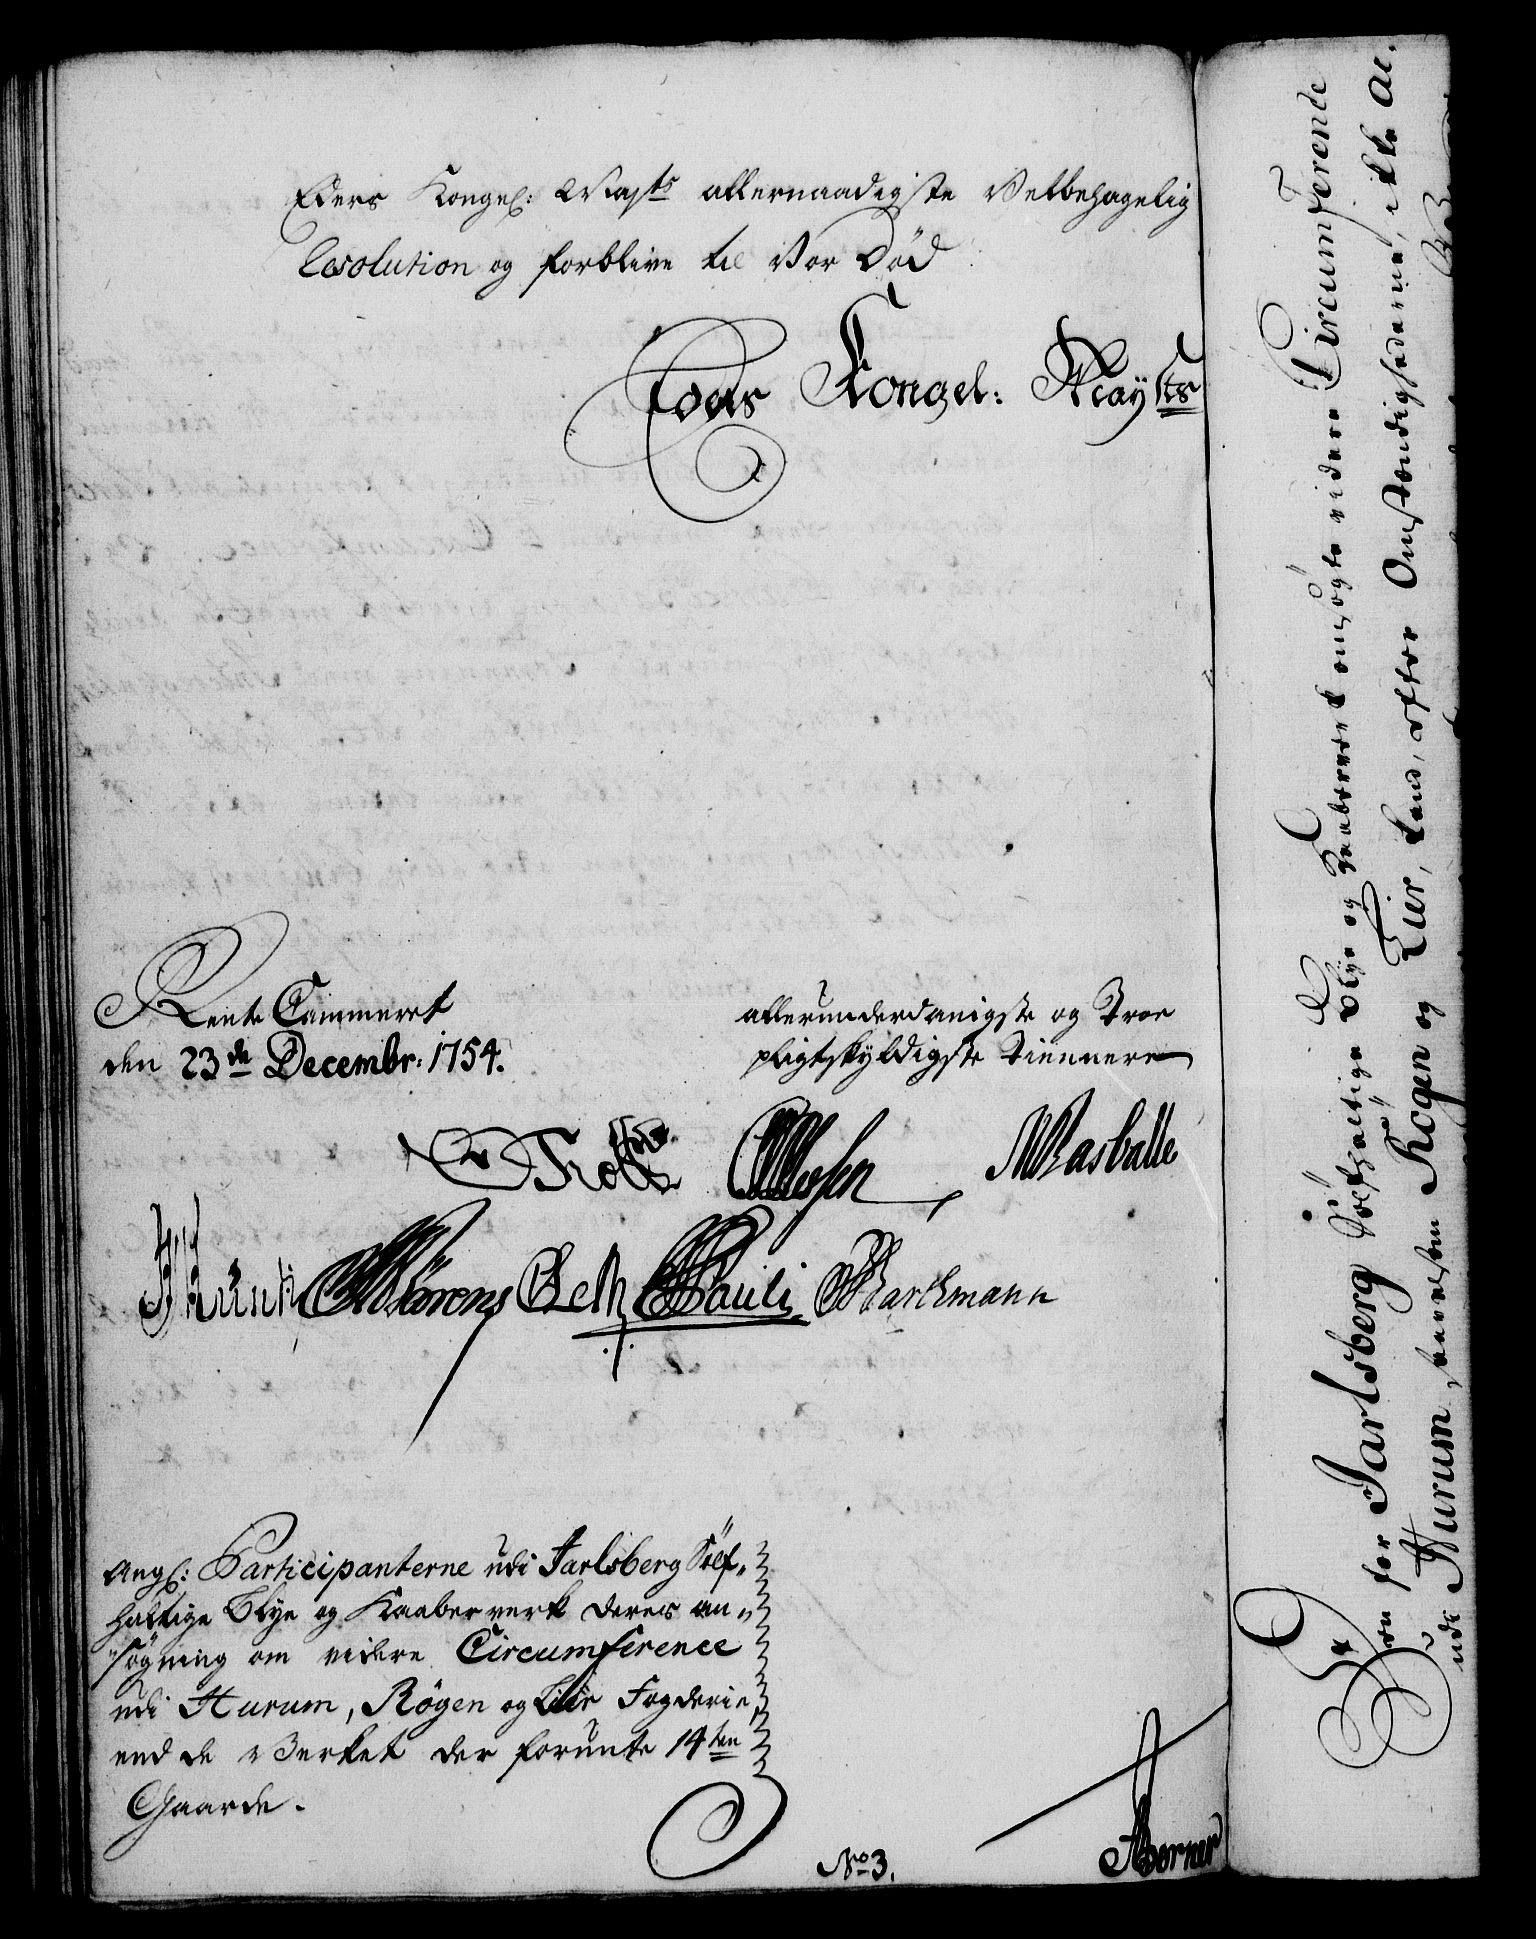 Eders Kongel: Maÿts allernaadigste Velbehagelig
Resolution og forblive til Vor Død
Eders Kongel: Mayts
Rente Cammeret
den 23de Decembr: 1754.
allerunderdanigste og Troe
pligtskyldigste Tiennere
Holst
MRasballe
Pauli
Barchmann
Ang: Participanterne udi Jarlsberg Sølf-
haltige Blye og Kaaberverk deres an-
søgning om videre Circumference
udi Hurum, Røgen og Lier Fogderie,
end de Verket der forunte 14ten
Gaarde.
No 3.
Børner
den for Jarlsberg Sølfhaltige Blye og Kaaberverk ansøgte videre Circumference
udi Hurum, Røgen og Lier, kand, efter Omstændighederne, ikke Ac.